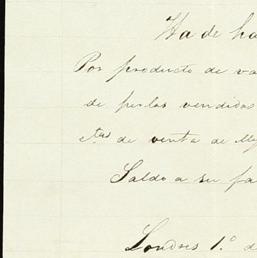 Ha de ha
Por producto de va
de perlas vendidas
ctas de venta de My
Saldo a su fa
Londres 1.º d